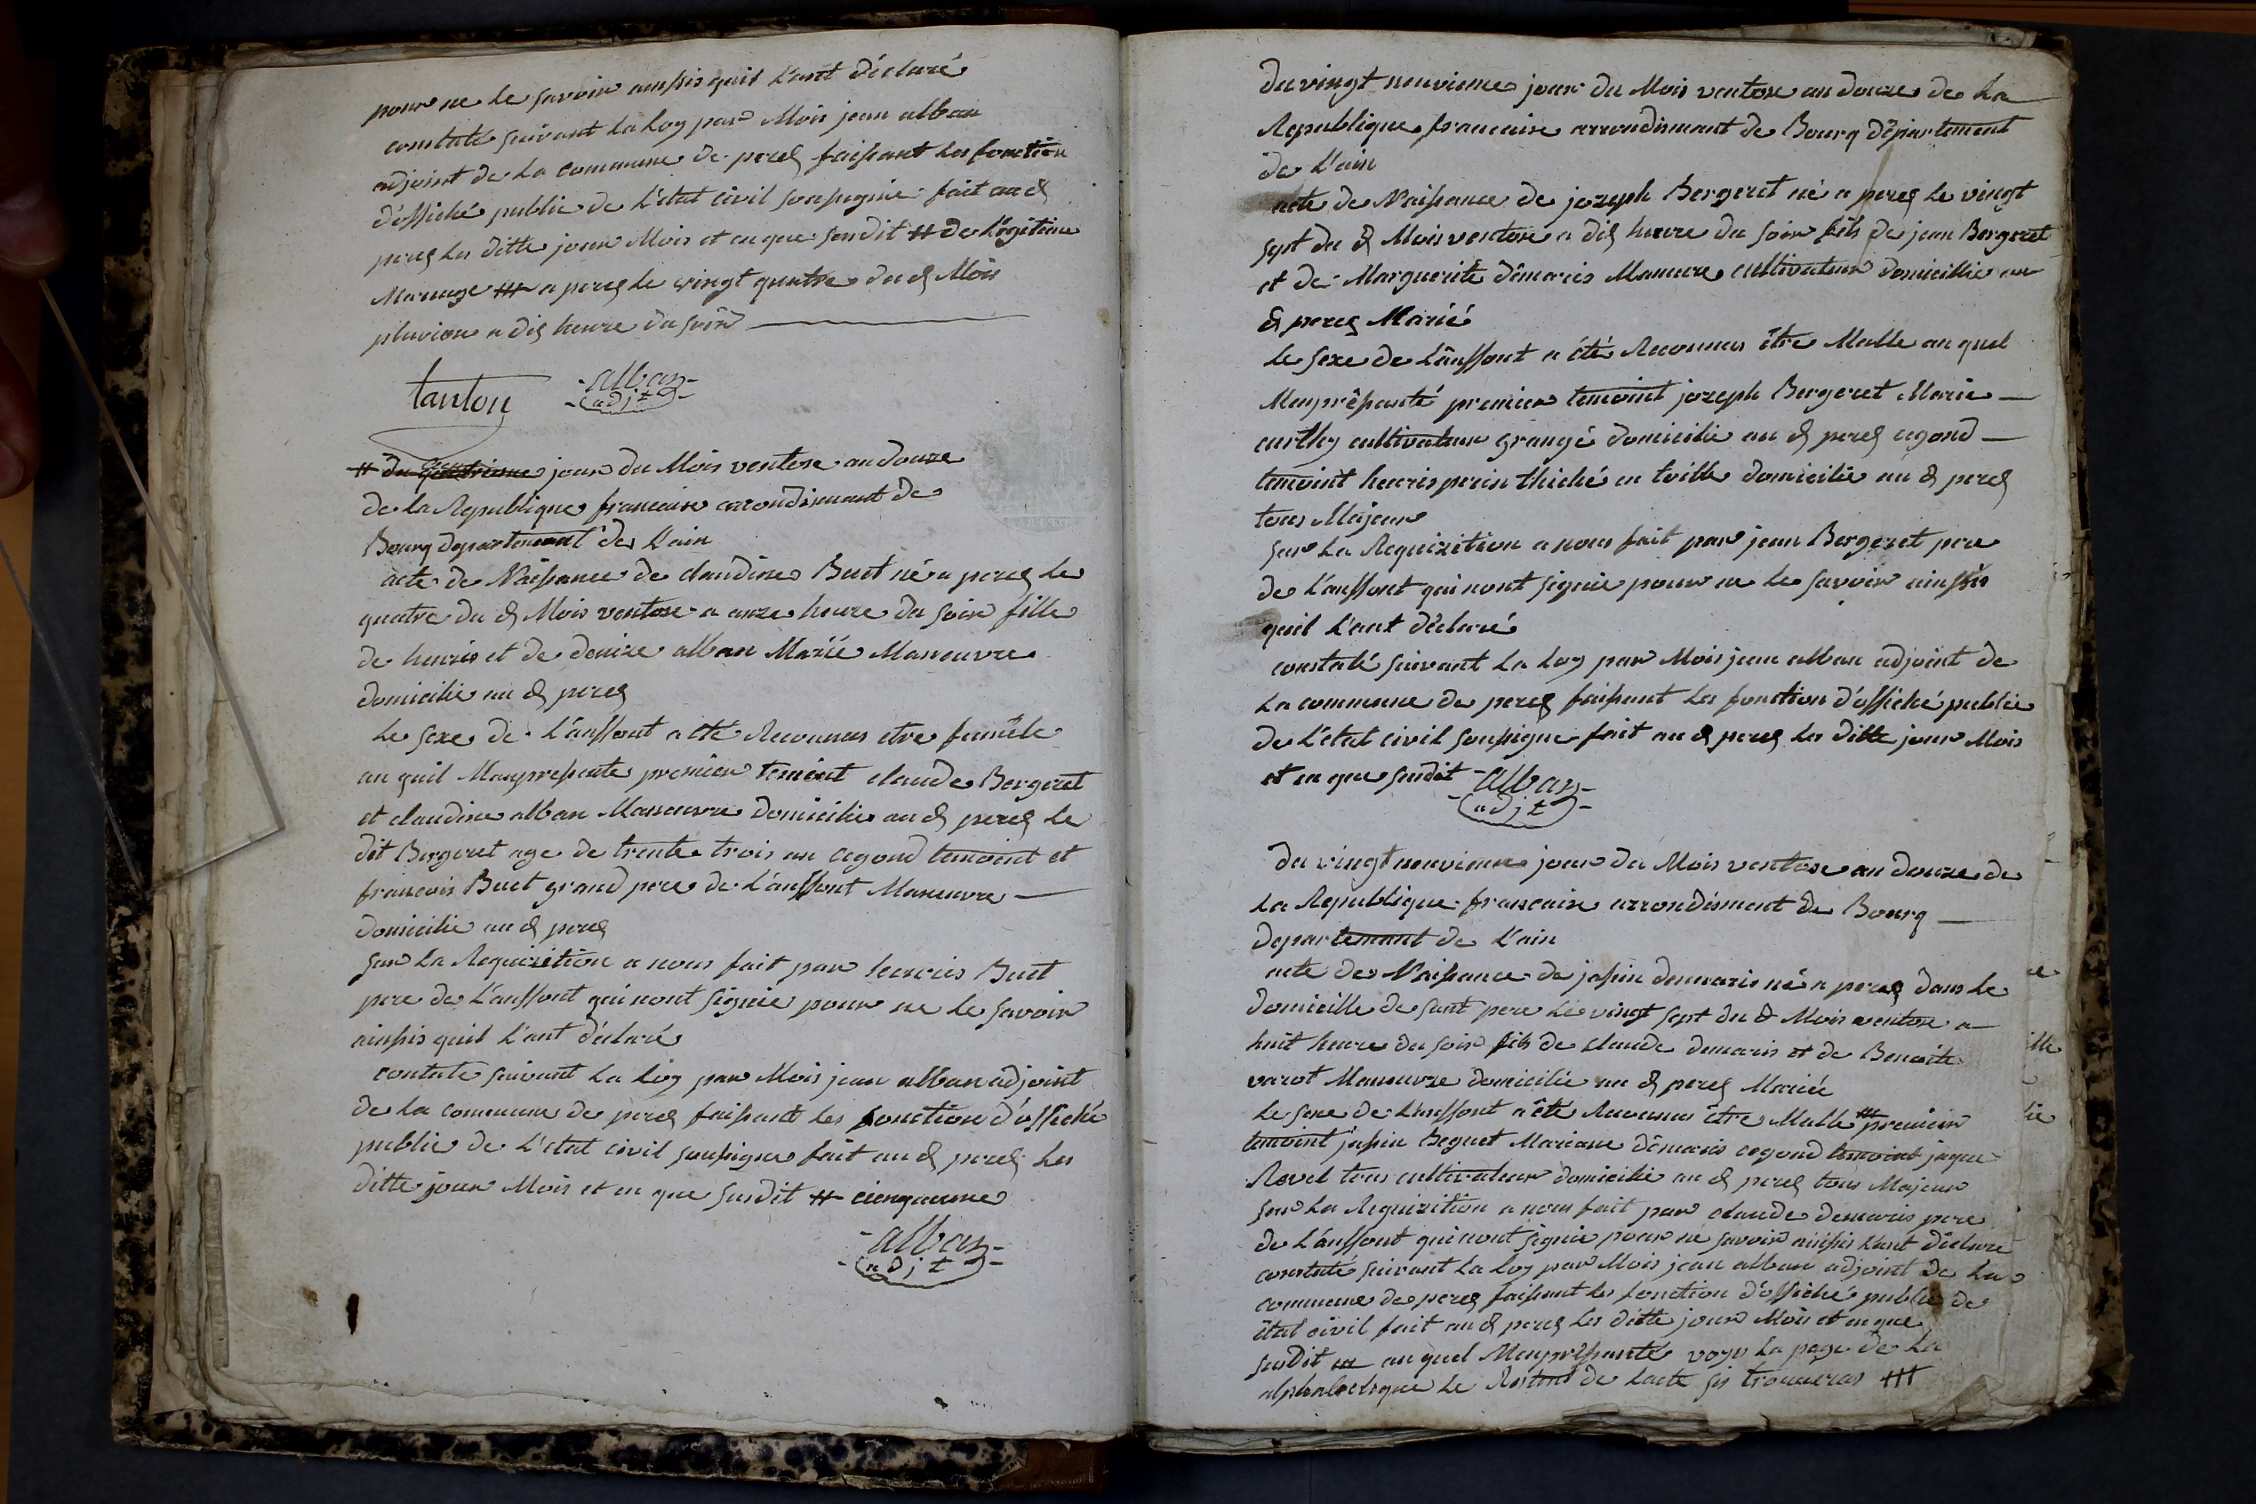 pour ne le savoir ainssis quil L'ant déclaré
constaté suivant La Loy par Mois jean alban
adjoint de La commune de perez faissant Les fonction
d'offiché public de L'etat civil soussigné fait au d
perez Les ditte jour Mois et en que susdit # de Légitime
Mariage ### a perez le vingt quatre du d Mois
pluviose a dix heure du soir
tanton
alban
adjt
# du jour du Mois ventose an douze
de La Republique francaise arrondismant de
Bourg departement de L'ain
acte de Naissance de claudine Buet né a perez le
quatre du d Mois ventose a onze heure du soir fille
de henris et de denize alban Marié Maneuvre
domicilié au d perez
Le sexe de L'anffont a eté Reconnus etre femêle
au quil Mauypressente premier temoint claude Bergeret
et claudine alban Maneuvre domicilié au d perez Le
dit Bergeret age de trente trois an cegond temoint et
francois Buet grand pere de L'anffont Maneuvre
domicilié au d perez
sur La Requizition a nous fait par henris Buet
pere de L'anffont qui nont signié pour ne le savoir
ainssis quil L'ant déclaré
contaté suivant La Loy par Mois jean alban adjoint
de La commune de perez faissant Les fonction d'offiché
public de L'etat civil soussigné fait au d perez Les
ditte jour Mois et en que susdit # cienquieme
alban
adjt
du vingt neuvieme jour du Mois ventose an douze de La
Republique francaise arrondismant de Bourg département
de L'ain
acte de Naissance de jozeph Bergeret né a perez Le vingt
sept du d Mois ventose a dix heure du soir fils de jean Bergeret
et de Marguerite démaris Maneuvre cultivateur domicillié au
d perez Marié
Le sexe de L'anffont a été Reconnus être Malle au quel
Mauyprêssanté premier temoint jozeph Bergeret Marie
curthy cultivateur grangé domicilié au d perez cegond
temoint henris perin thiché en toille domicilié au d perez
tous Majeur
sur La Requizition a nous fait par jean Bergeret pere
de L'anffont qui nont signié pour ne le savoir ainssis
quil L'ant déclaré
constaté suivant La Loy par Mois jean alban adjoint de
La commune de perez faissant Les fonction d'offiché public
de L'etat civil soussigné fait au d perez Les ditte jour Mois
et en que susdit
alban
adjt
du vingt neuvieme jour du Mois ventose an douze de
La Republique francaise arrondisment de Bourg
departemant de L'ain
acte de Naissance de jossin demaris né a perez dans le
domicille de sant pere le vingt sept du d Mois ventose a
huit heure du soir fils de claude demaris et de Benoite
varot Maneuvre domicilié au d perez Marié
Le sexe de L'anffont a été Reconnus être Malle ### premier
temoint jossin Beguet Mariane démaris cegond temoint jaque
Revel tous cultivateur domicilié au d perez tous Majeur
sur La Requizition a nous fait par claude demaris pere
de L'anffont qui nont signié pour ne savoir ainssis L'ant déclare
constaté suivant La Loy par Mois jean alban adjoint de La
commune de perez faissant Les fonction d'offiché public de
état civil fait au d perez Les ditte jour Mois et en que
susdit ### au quel Mauyprêssanté voyé La page de La
alphabetique Le Restant de Lacte sis trouveras ###